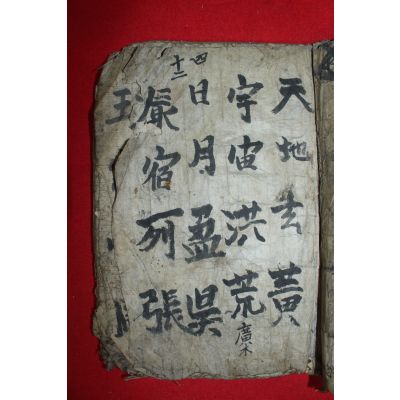 天地玄黃
宇宙洪荒
廣木
四
日月盈昃
十二
辰宿列張